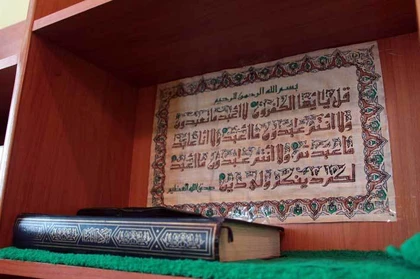 بسم الله الرحمن الرحيم
قل يا يها الكفرون لا اعبد ما تعبدون
ولا انتم عبدون ما اعبد ولا انا عابد
ما عبدتم ولا انتم عبدون ما اعبد
لكم دينكم ولي دين صدق الله العظيم